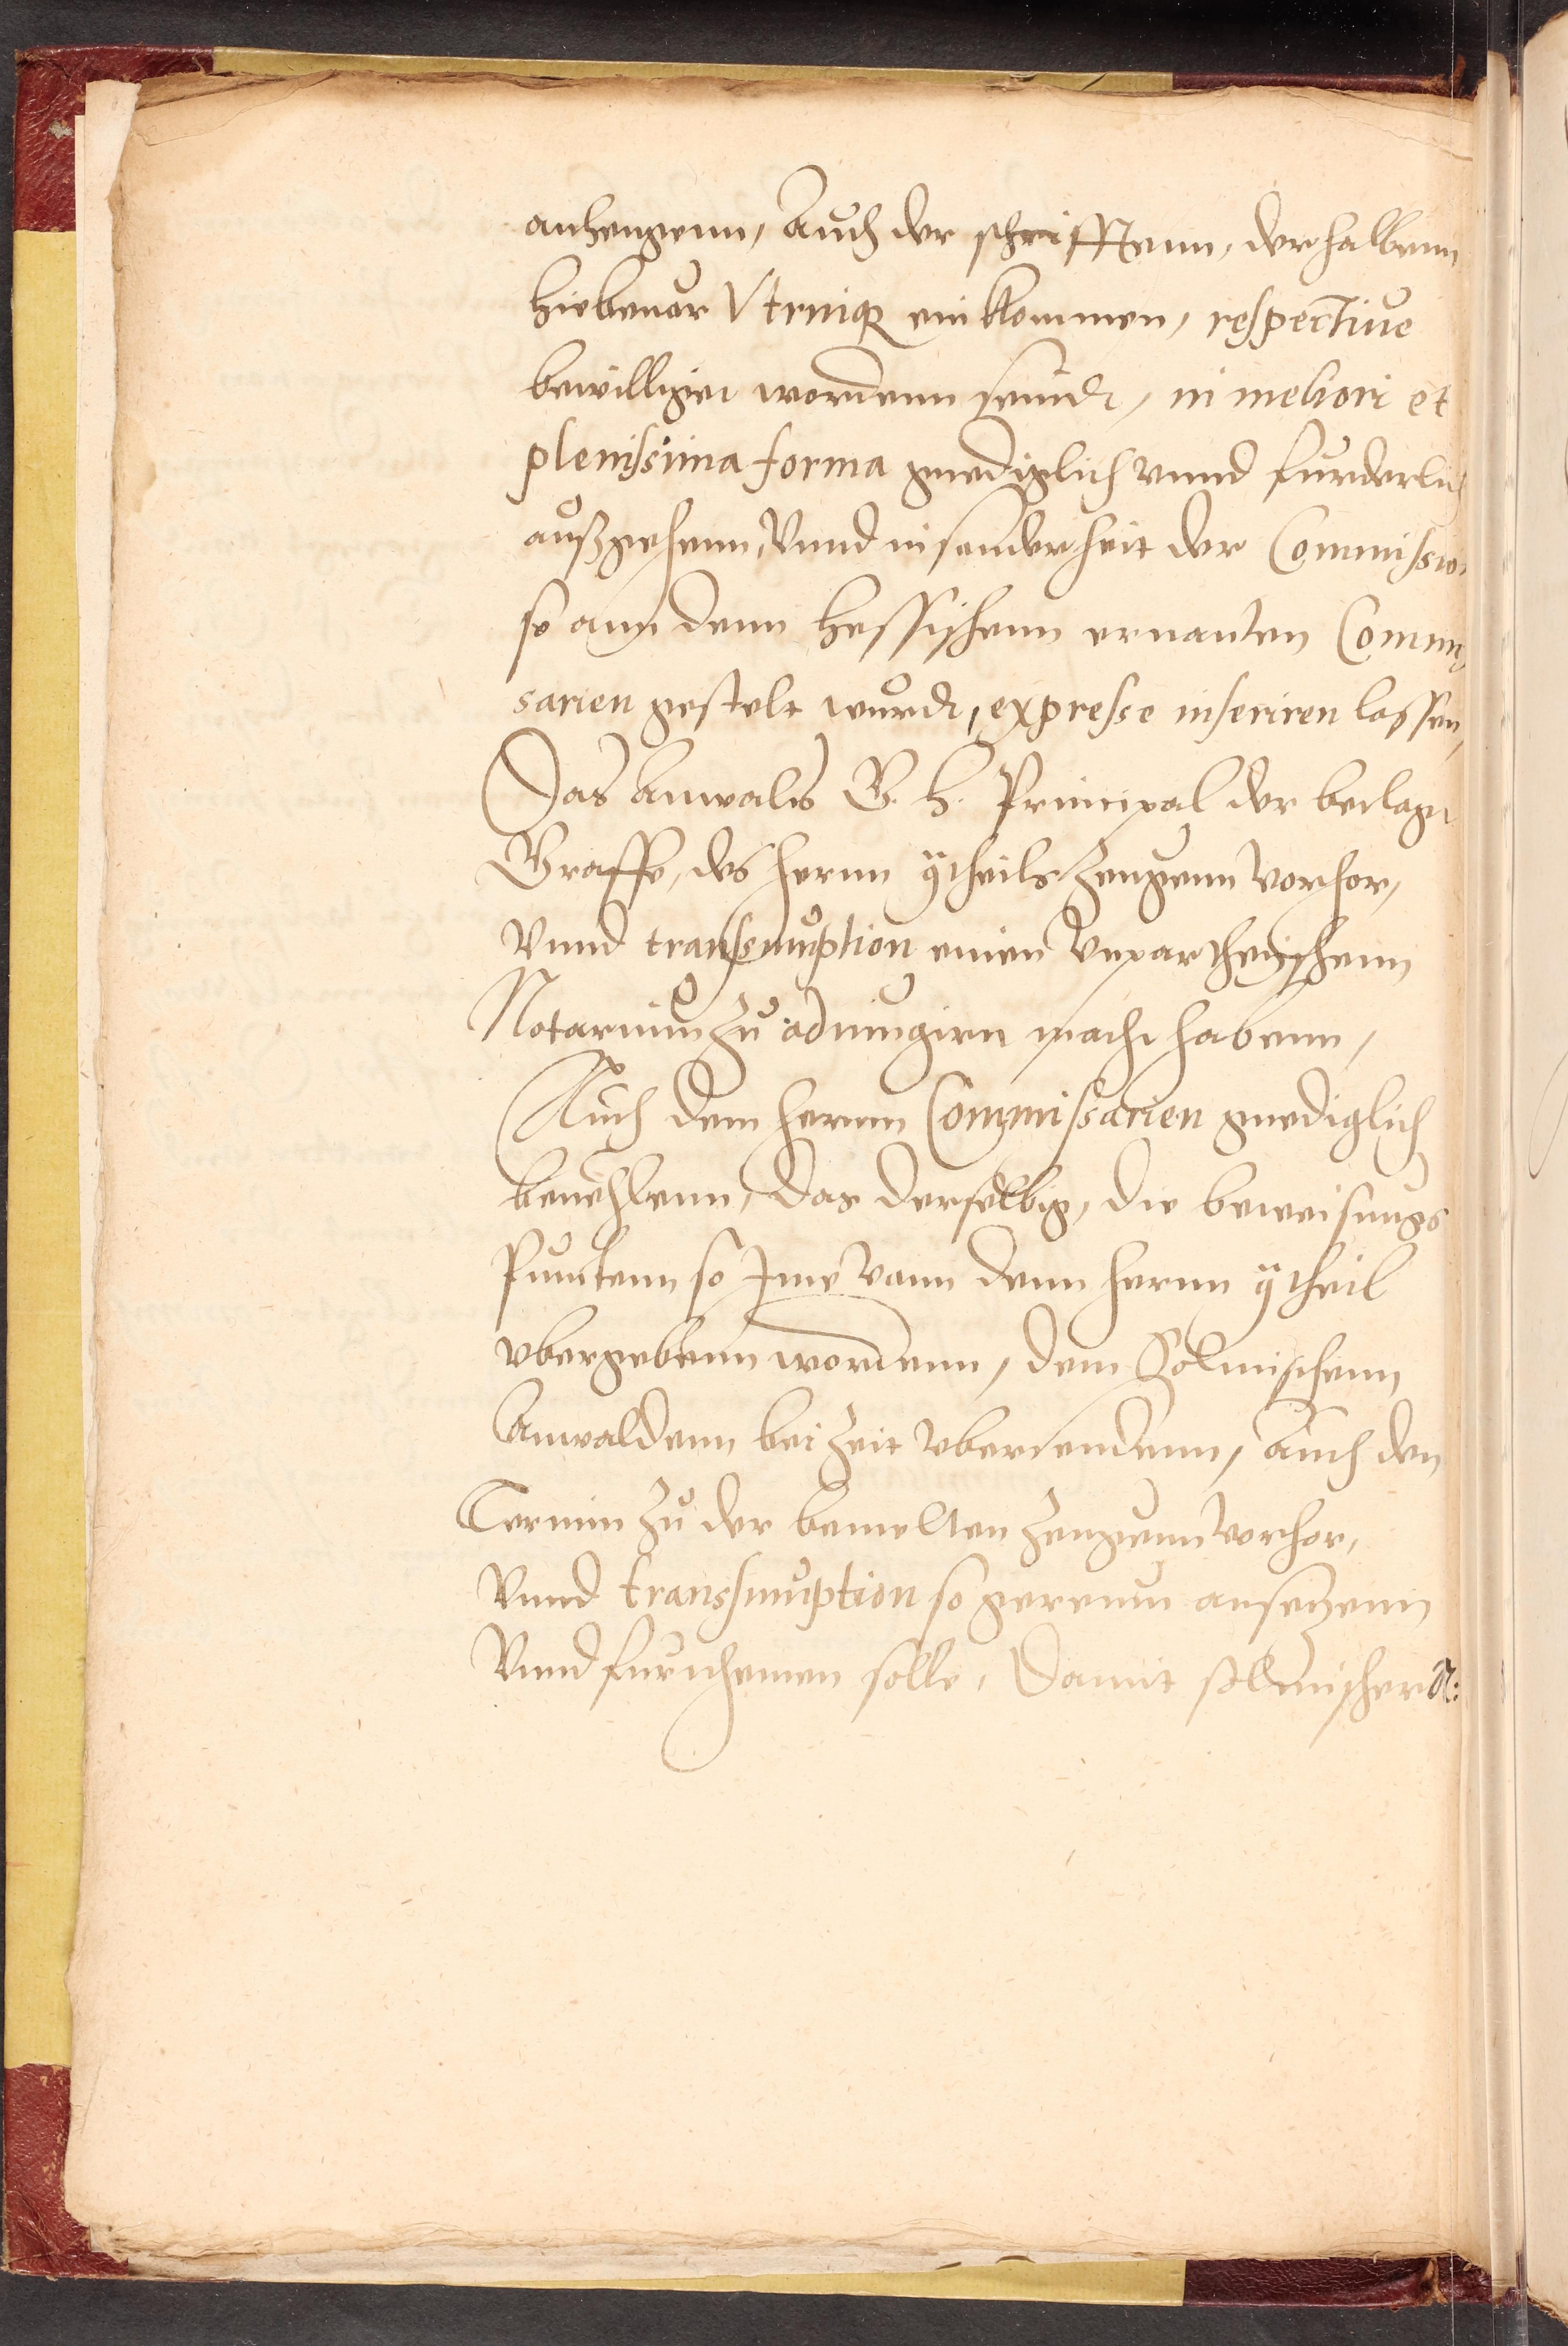 anhengenn, Auch der schrifftenn, derhalbenn
hiebeuor Vtrinq einkommen, respectiue
bewilliget wordenn seindt, in meliori et
plenissima forma gnediglich vnnd furderlich
außgehenn, Vnnd in sonderheit der Commission
so ann denn Hessischenn ernanten Commis
sarien gestelt wurdt, expresse inseriren lassen,
Das Anwalds G. H. Principal der beclagt
Graffe, des hernn gtheils Zeugenn Vorhor,
Vnnd transsumption einen Vnpartheyschenn
Notarium zu adiungirn macht habenn,
Auch dem hernn Commissarien gnediglich
beuehlenn, das derselbig, die beweisungs
Puncten so Ime vann denn hernn gtheil
vbergebenn wordenn, dem Solmischenn
Anwaldenn bei Zeit vbersendenn, Auch den
Termin zu der bemelten Zeugenn Vorhor,
Vnnd transsumption so geraum ansetzenn
Vnnd furnhemen solle, Damit solmischer A: